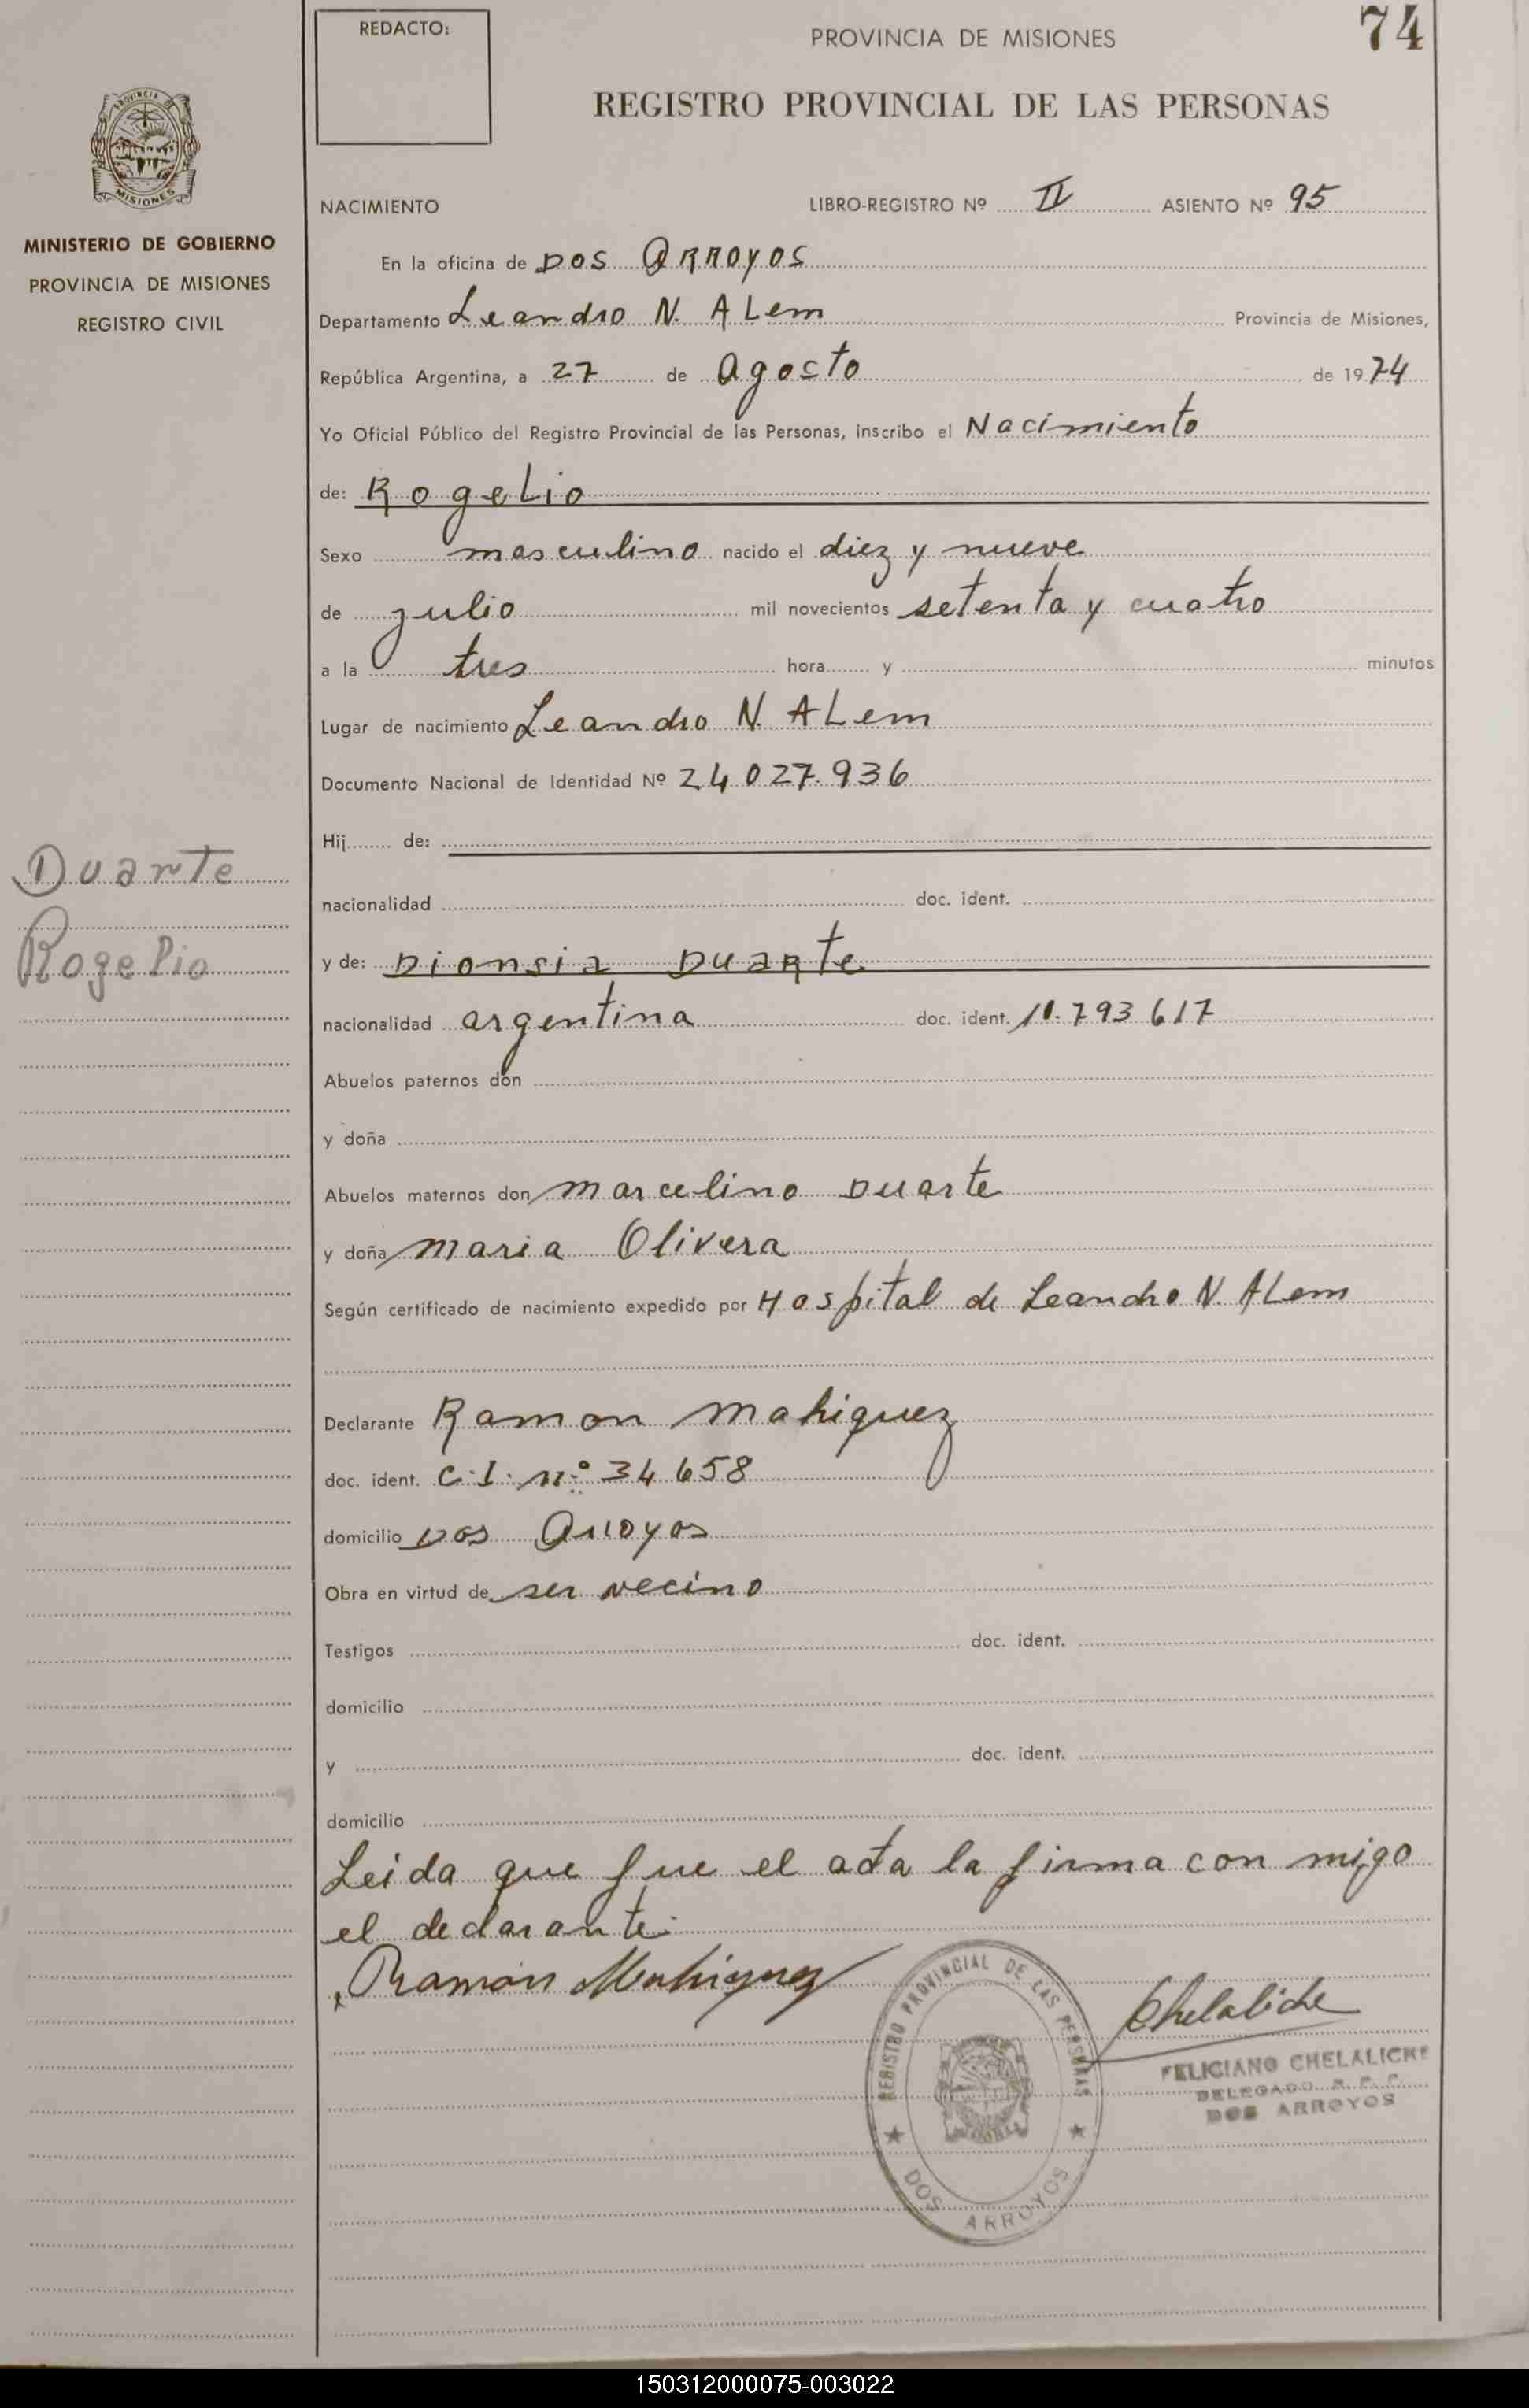 REDACTO:
PROVINCIA DE MISIONES
74
REGISTRO PROVINCIAL DE LAS PERSONAS
PROVINCIA DE
MISIONES
MINISTERIO DE GOBIERNO
PROVINCIA DE MISIONES
REGISTRO CIVIL
NACIMIENTO LIBRO-REGISTRO Nº II ASIENTO Nº 95
En la oficina de DOS ARROYOS
Departamento Leandro N. ALem Provincia de Misiones,
República Argentina, a 27 de Agosto de 1974
Yo Oficial Público del Registro Provincial de las Personas, inscribo el Nacimiento
de: RogeLio
Sexo masculino nacido el diez y nueve
de julio mil novecientos setenta y cuatro
a la tres hora y minutos
Lugar de nacimiento Leandro N. ALem
Documento Nacional de Identidad Nº 24.027.936
Hij de:
Duarte
nacionalidad doc. ident.
Rogelio
y de: Dionsia Duarte
nacionalidad argentina doc. ident. 10.793617
Abuelos paternos don
y doña
Abuelos maternos don marcelino Duarte
y doña maria Olivera
Según certificado de nacimiento expedido por Hospital de Leandro N. ALem
Declarante Ramon mahiquez
doc. ident. C.I. nº 34658
domicilio Dos Arroyos
Obra en virtud de ser vecino
Testigos doc. ident.
domicilio
y doc. ident.
domicilio
Leida que fue el acta la firma con migo
el declarante.
Ramón Mahiquez
REGISTRO PROVINCIAL DE LAS PERSONAS
DOS ARROYOS
Chelaliche
FELICIANO CHELALICHE
DELEGADO R. P. P.
DOS ARROYOS
150312000075-003022